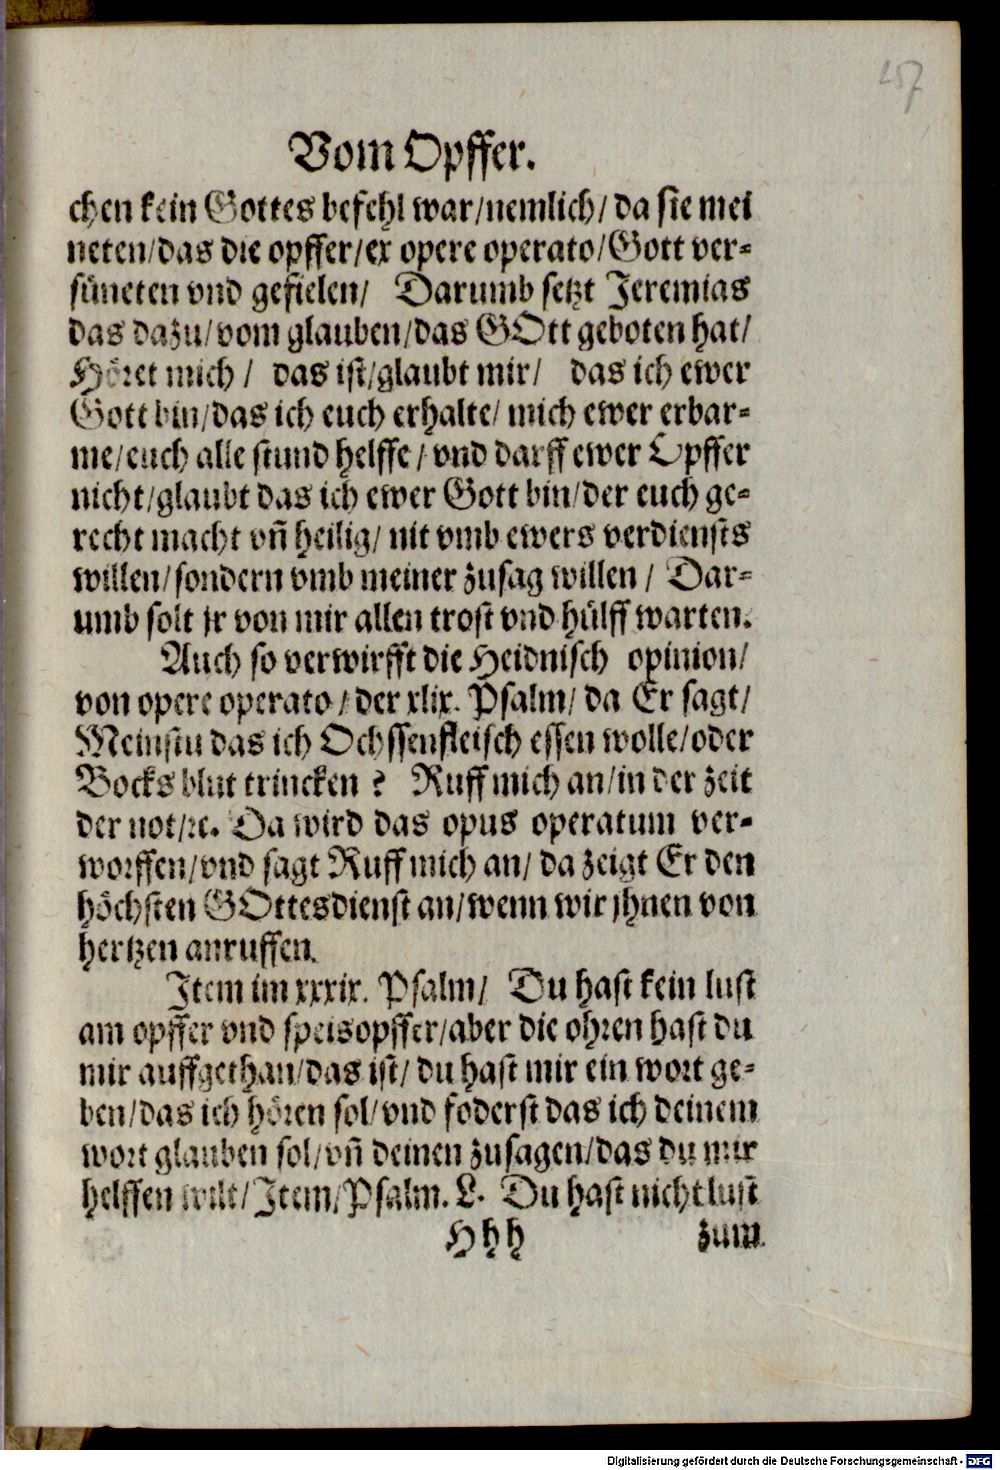 257
Vom Opffer.
chen kein Gottes befehl war/nemlich/ da sie mei
neten/das die opffer/ex opere operato/Gott ver-
süneten vnd gefielen/ Darumb setzt Jeremias
das dazu/vom glauben/das GOtt geboten hat/
Höret mich / das ist/glaubt mir/ das ich ewer
Gott bin/das ich euch erhalte/ mich ewer erbar-
me/euch alle stund helffe/ vnd darff ewer Opffer
nicht/glaubt das ich ewer Gott bin/der euch ge-
recht macht vñ heilig/ nit vmb ewers verdiensts
willen/sondern vmb meiner zusag willen / Dar-
umb solt jr von mir allen trost vnd hülff warten.
Auch so verwirfft die Heidnisch opinion/
von opere operato/ der xlix. Psalm/ da Er sagt/
Meinstu das ich Ochssenfleisch essen wolle/oder
Bocks blut trincken ? Ruff mich an/in der zeit
der not/ꝛc. Da wird das opus operatum ver-
worffen/vnd sagt Ruff mich an/ da zeigt Er den
höchsten GOttesdienst an/wenn wir jhnen von
hertzen anruffen.
Item im xxxix. Psalm/ Du hast kein lust
am opffer vnd speisopffer/aber die ohren hast du
mir auffgethan/das ist/ du hast mir ein wort ge-
ben/das ich hören sol/vnd foderst das ich deinem
wort glauben sol/vñ deinen zusagen/das du mir
helffen wilt/Item/Psalm. L. Du hast nicht lust
Hhh zum
Digitalisierung gefördert durch die Deutsche Forschungsgemeinschaft - DFG